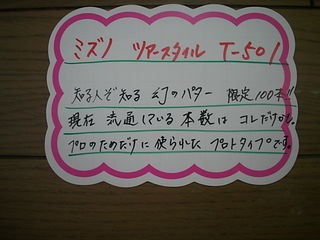 ミズノ ツアースタイル T-501
知る人ぞ知る 幻のパター 限定100本!!
現在 流通している 本数は コレだけかも。
プロのためだけに 使られた プロトタイプです。